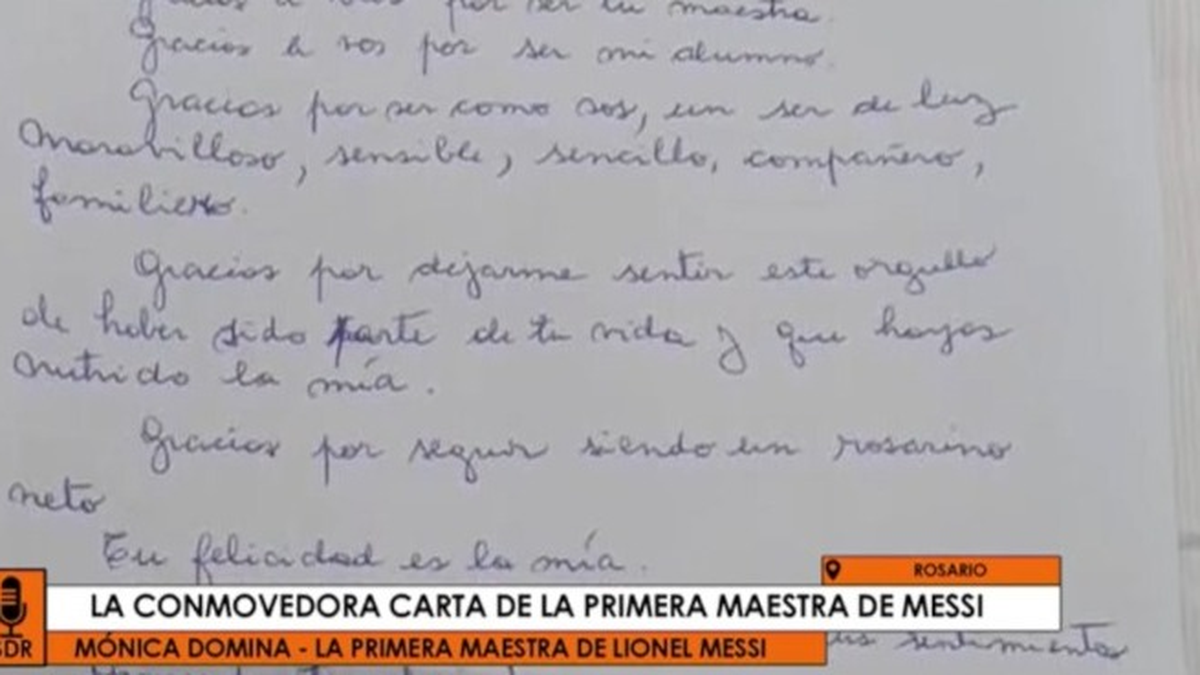 por ser tu maestra.
Gracias a vos por ser mi alumno.
Gracias por ser como sos, un ser de luz
maravilloso, sensible, sencillo, compañero,
familiero.
Gracias por dejarme sentir este orgullo
de haber sido parte de tu vida y que hayas
nutrido la mía.
Gracias por seguir siendo un rosarino
neto
Tu felicidad es la mía.
ROSARIO
LA CONMOVEDORA CARTA DE LA PRIMERA MAESTRA DE MESSI
SDR
MÓNICA DOMINA - LA PRIMERA MAESTRA DE LIONEL MESSI
sentimientos